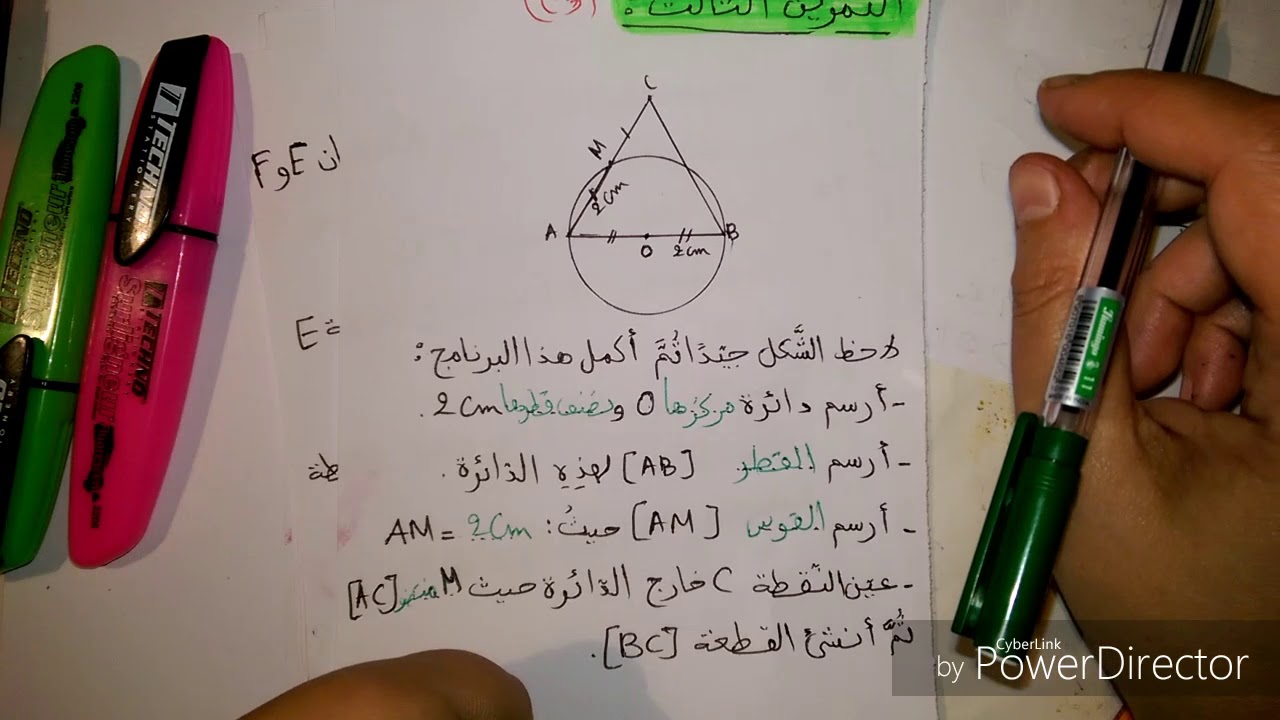 التمرين الثالث :
C
M
2cm
A
B
O
2cm
F و E ان
E ة
طة
لاحظ الشَّكل جيّدًا ثُمَّ أكمل هذا البرنامج :
- أرسم دائرة مركزها O ونصف قطرها 2cm.
- أرسم القطر [AB] لهذِهِ الدّائرة .
- أرسم القوس [AM] حيثُ : AM = 2cm
- عيّن النّقطة C خارج الدّائرة حيث M منتصف [AC]
ثُمَّ أنشئ القطعة [BC].
TECHNO
STATIONERY
TECHNO
CyberLink
by PowerDirector